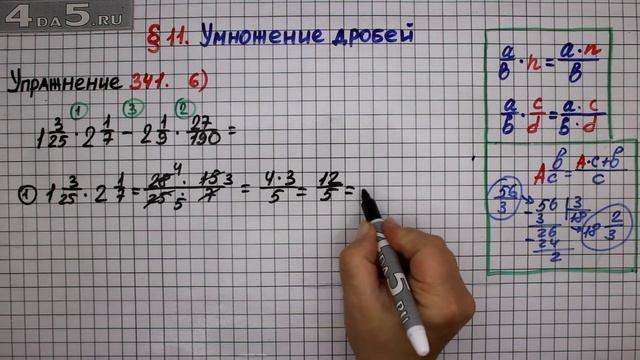 4DA5.RU
§ 11. Умножение дробей
Упражнение 341. б)
① ③ ②
1 3/25 · 2 1/7 − 2 1/9 · 27/190 =
① 1 3/25 · 2 1/7 = 28 4/25 5 · 15 3/7 = 4·3/5 = 12/5 =
a/b · n = a·n/b
a/b · c/d = a·c/b·d
A b/c = A·c+b/c
56/3
56 | 3
3 | 18
26
24
2
18 2/3
4DA5.RU